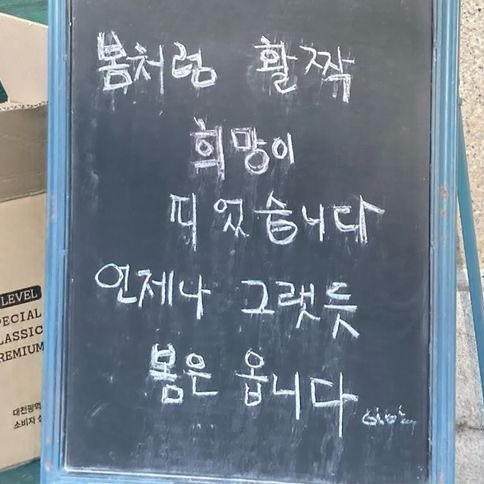 봄처럼 활짝
희망이
피었습니다
언제나 그랫듯
봄은 옵니다
LEVEL
PECIAL
LASSIC
REMIUM
대전광역
소비자 상